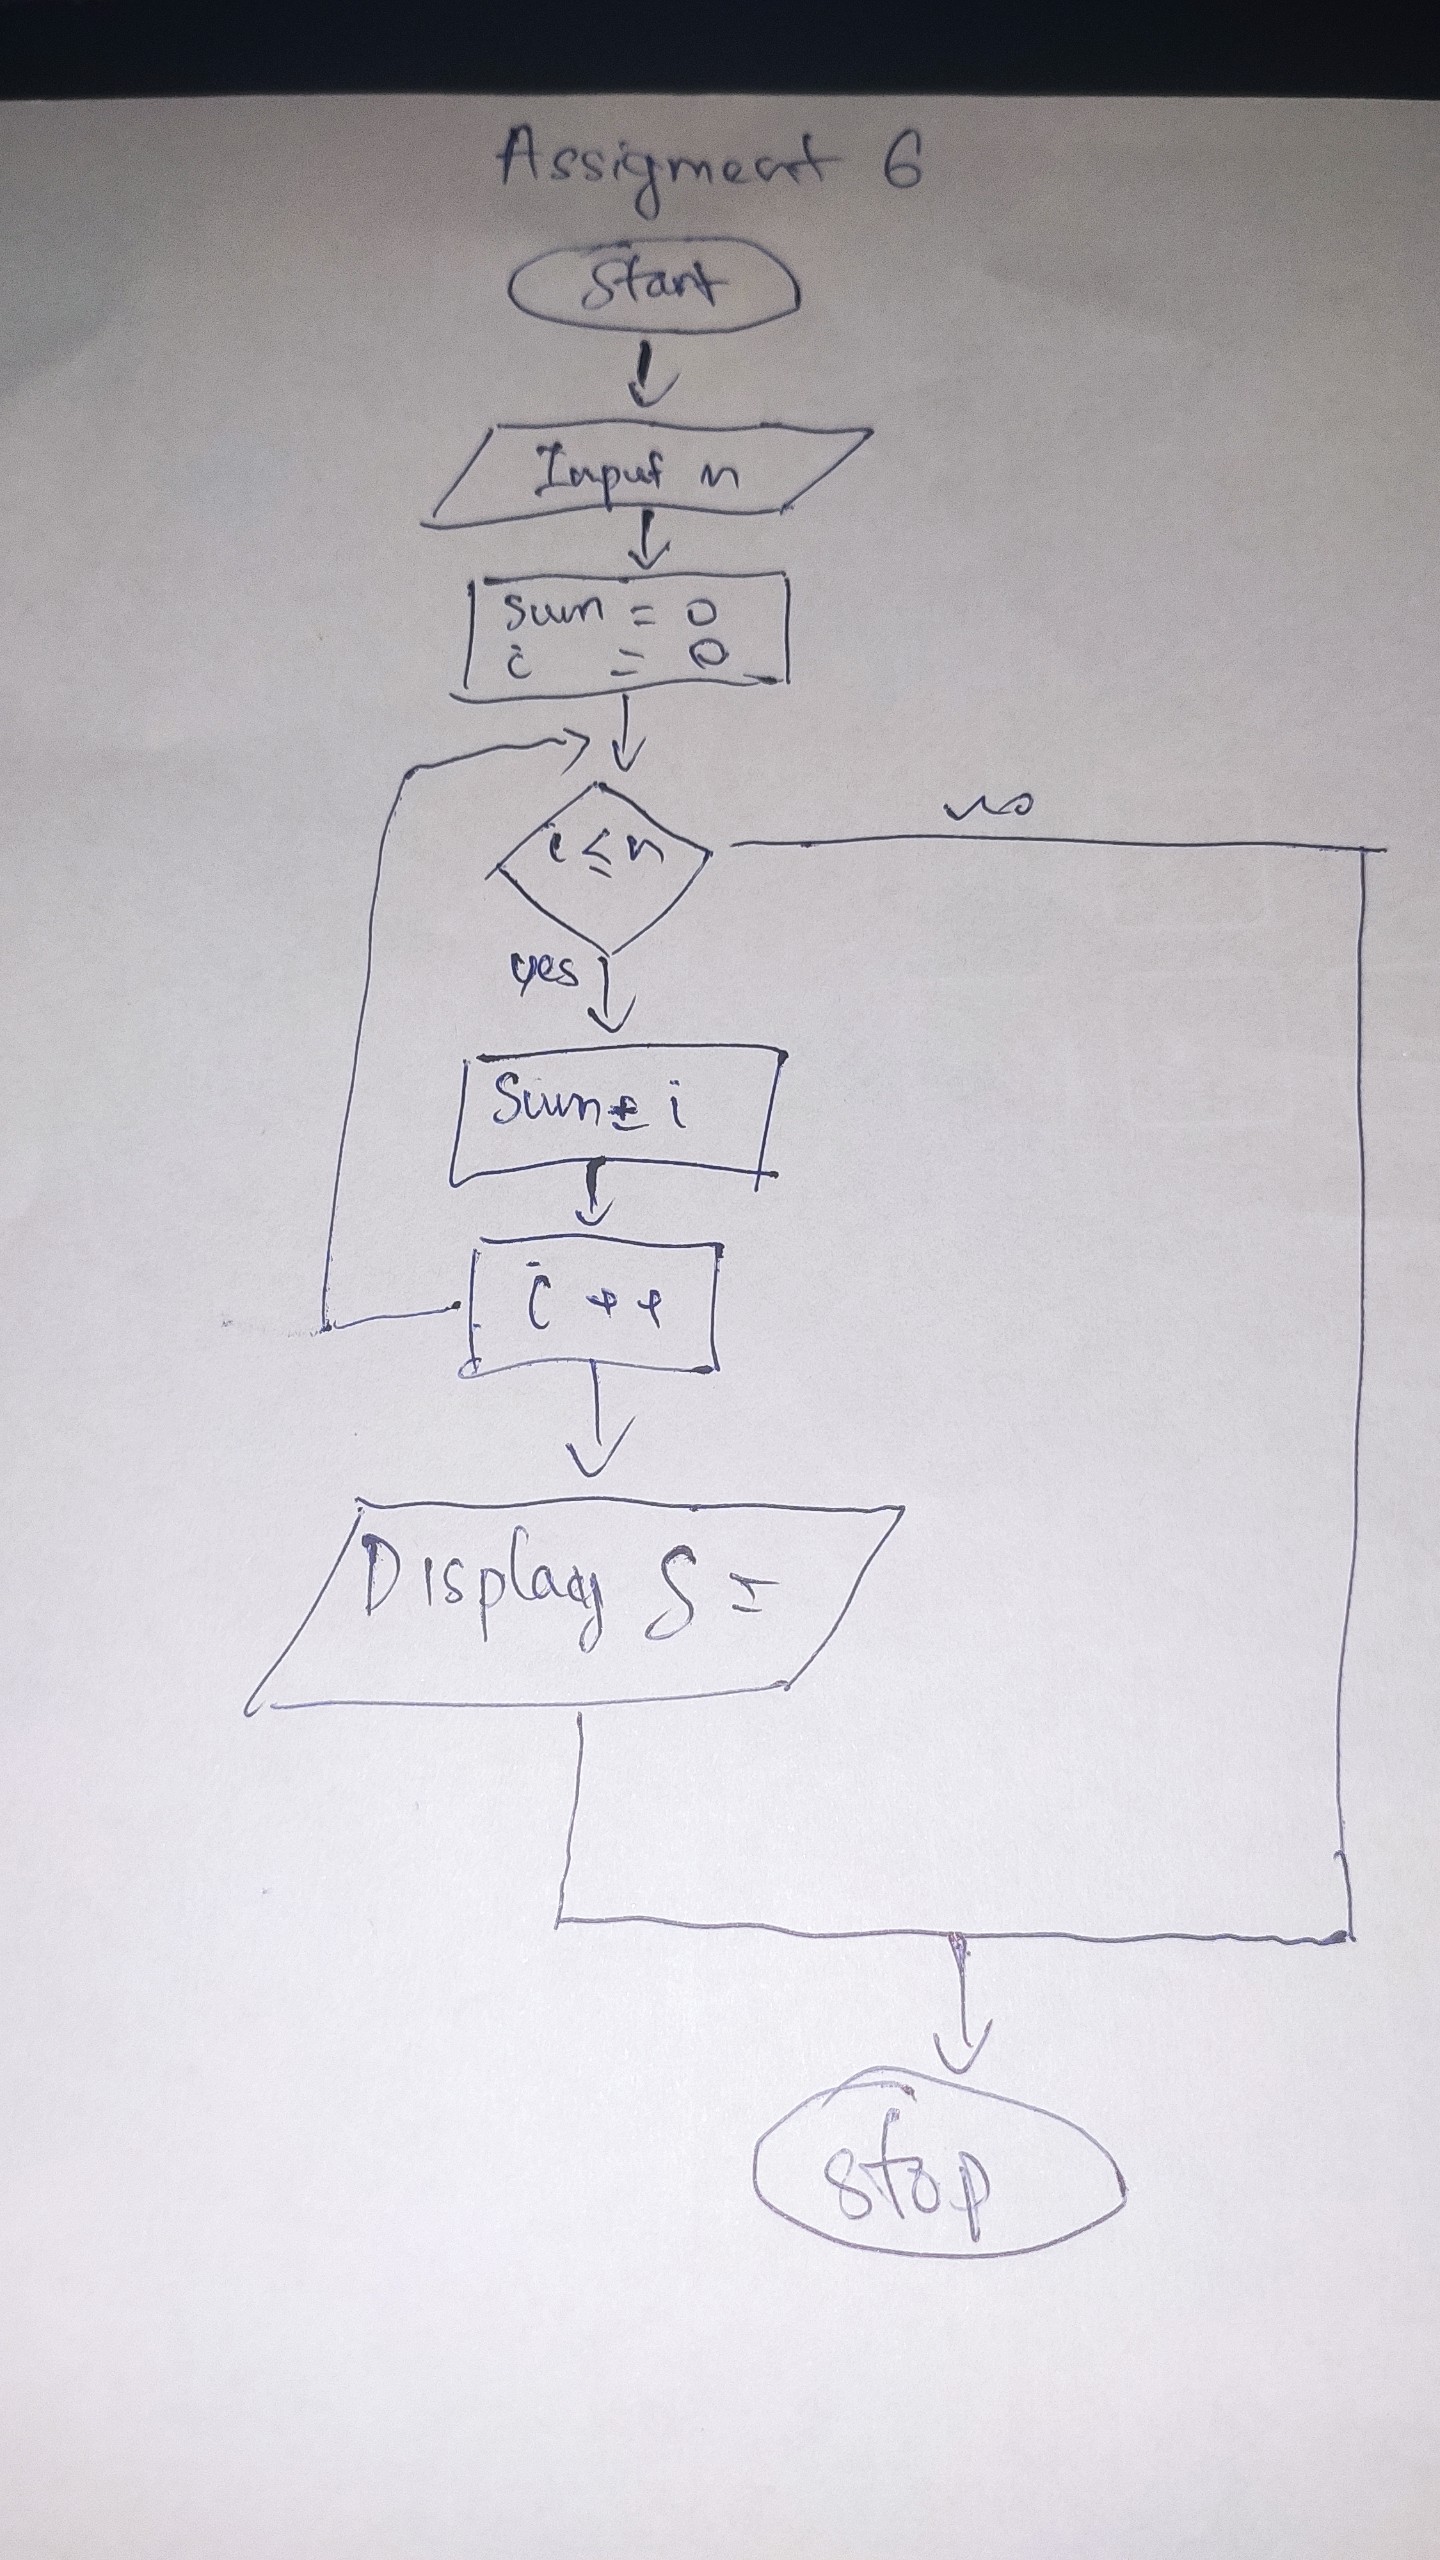 Assigment 6
Start
Input n
Sum = 0
i = 0
i ≤ n
no
yes
Sum += i
i ++
Display S =
stop